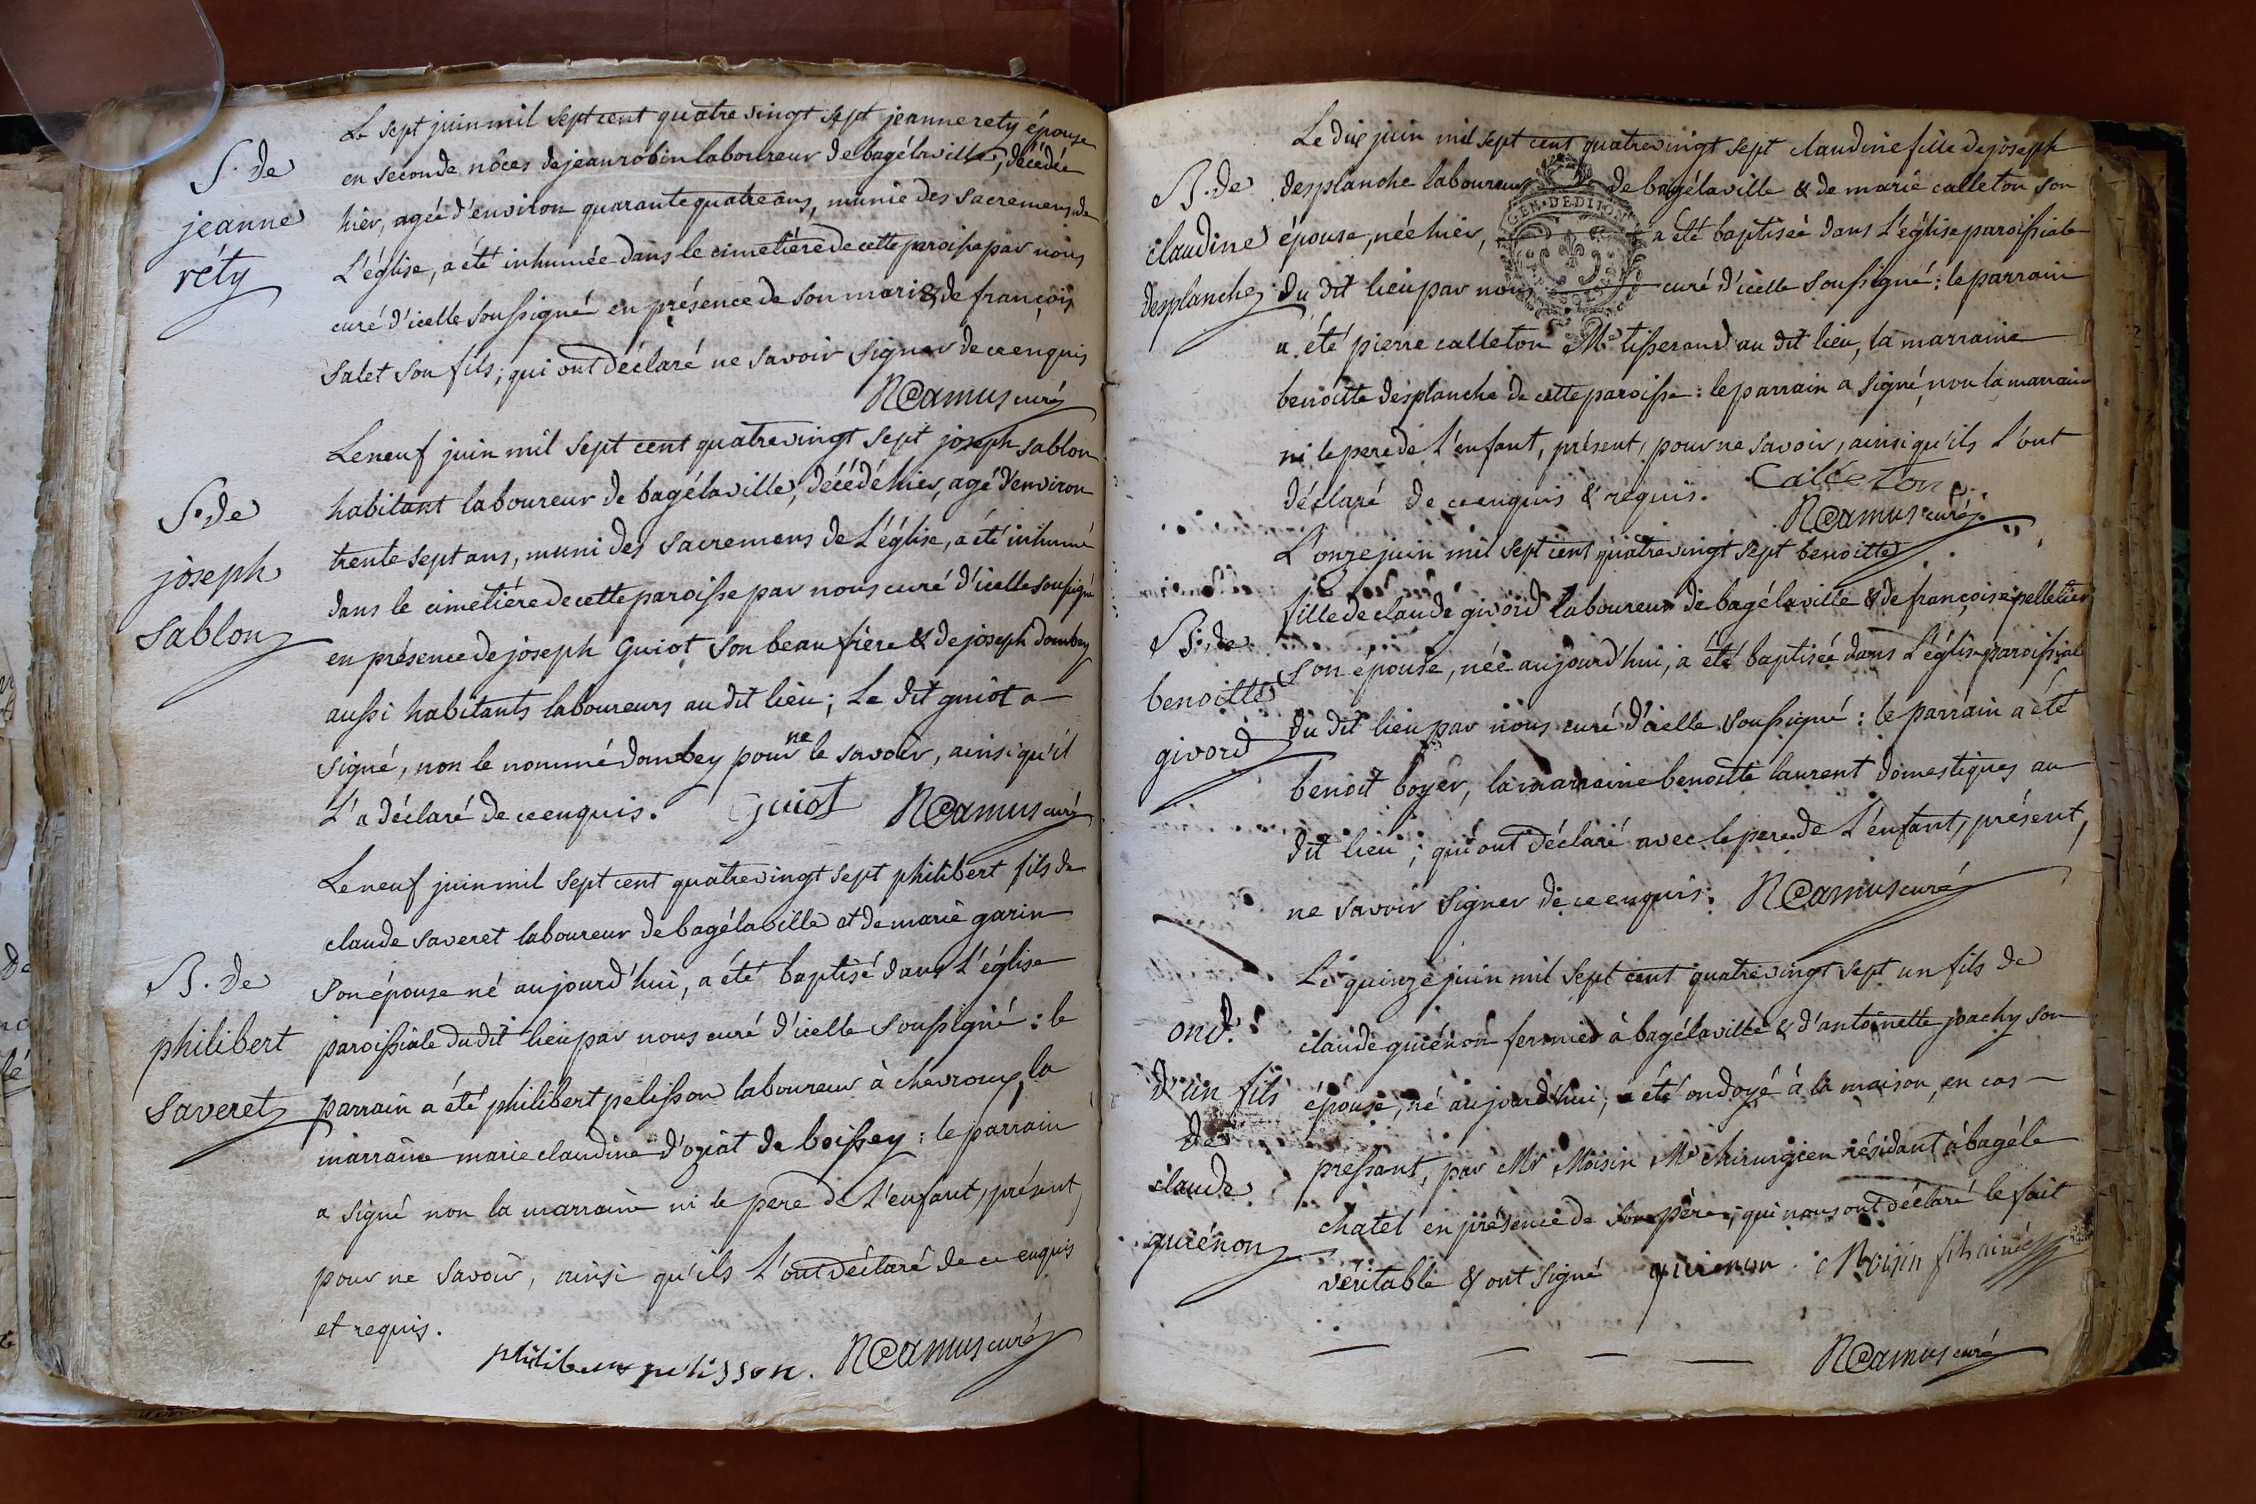 S. de
jeanne
réty
Le sept juin mil sept cent quatre vingt sept jeanne rety épouse
en seconde nôces de jean robin laboureur de bagélaville, décédée
hier, agée d'environ quarante quatre ans, munie des sacremens de
L'église, a été inhumée dans le cimetière de cette paroisse par nous
curé d'icelle soussigné en présence de son mari & de françois
salet son fils; qui ont déclaré ne savoir signer de ce enquis
NCamus curé
S. de
joseph
sablon
Le neuf juin mil sept cent quatre vingt sept joseph sablon
habitant laboureur de bagélaville, décédé hier, agé d'environ
trente sept ans, muni des sacremens de L'église, a été inhumé
dans le cimetière de cette paroisse par nous curé d'icelle soussigné
en présence de joseph Guiot son beau frère & de joseph dombey
aussi habitants laboureurs au dit lieu; Le dit guiot a
signé, non le nommé dombey pour ne le savoir, ainsi qu'il
L'a déclaré de ce enquis. Guiot NCamus curé
B. de
philibert
saveret
Le neuf juin mil sept cent quatre vingt sept philibert fils de
claude saveret laboureur de bagélaville et de marie garin
son épouse né aujourd'hui, a été baptisé dans L'église
paroissiale du dit lieu par nous curé d'icelle soussigné: le
parrain a été philibert pelisson laboureur à chevroux, la
marraine marie claudine d'oziat de boissey: le parrain
a signé non la marraine ni le pere de L'enfant, présent,
pour ne savoir, ainsi qu'ils L'ont déclaré de ce enquis
et requis.
philibert pelisson. NCamus curé
B. de
claudine
desplanche
Le dix juin mil sept cent quatre vingt sept claudine fille de joseph
desplanche laboureur de bagélaville & de marie calleton son
épouse, née hier, a été baptisée dans L'église paroissiale
du dit lieu par nous curé d'icelle soussigné: le parrain
a été pierre calleton Me tisserand au dit lieu, la marraine
benoitte desplanche de cette paroisse: le parrain a signé, non la marraine
ni le pere de L'enfant, présent, pour ne savoir, ainsi qu'ils L'ont
déclaré de ce enquis & requis. Calleton
NCamus curé
GEN. DE DIJON
B. de
benoitte
givord
L'onze juin mil sept cent quatre vingt sept benoitte
fille de claude givord laboureur de bagélaville & de françoise pelletier
son épouse, née aujourd'hui, a été baptisée dans L'église paroissiale
du dit lieu par nous curé d'icelle soussigné: le parrain a été
benoit boyer, la marraine benoitte laurent domestiques au
dit lieu; qui ont déclaré avec le pere de L'enfant, présent,
ne savoir signer de ce enquis: NCamus curé
ond.
d'un fils
de
claude
guiénon
Le quinze juin mil sept cent quatre vingt sept un fils de
claude guiénon fermier à bagélaville & d'antoinette joachy son
épouse, né aujourd'hui, a été ondoyé à la maison, en cas
pressant, par Mr Moisin Me chirurgien résidant à bagéle
chatel en présence de son père; qui nous ont déclaré le fait
véritable & ont signé guienon Moisin fils ainé
NCamus curé